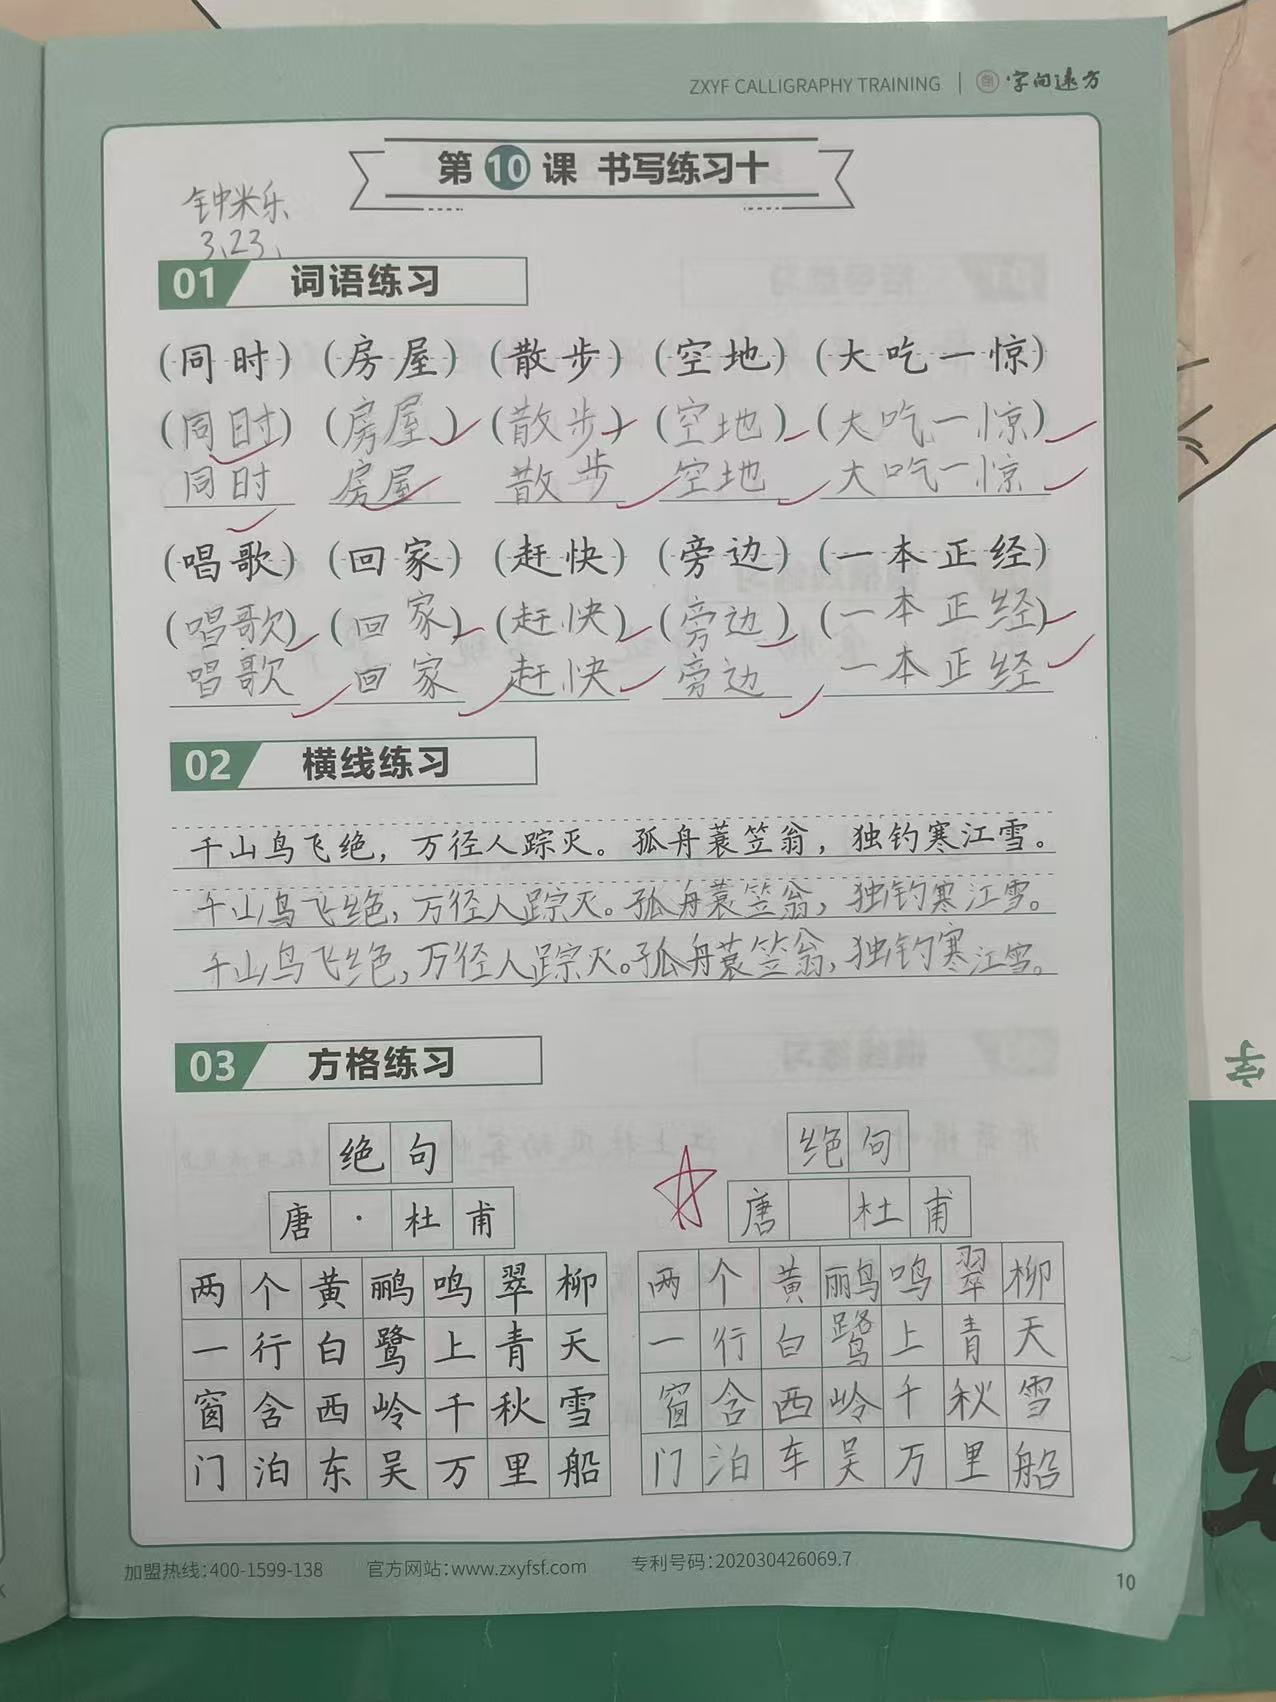 ZXYF CALLIGRAPHY TRAINING | 字间远方
第10课 书写练习十
钟米乐
3.23.
01 词语练习
(同时) (房屋) (散步) (空地) (大吃一惊)
(同时) (房屋) (散步) (空地) (大吃一惊)
同时 房屋 散步 空地 大吃一惊
(唱歌) (回家) (赶快) (旁边) (一本正经)
(唱歌) (回家) (赶快) (旁边) (一本正经)
唱歌 回家 赶快 旁边 一本正经
02 横线练习
千山鸟飞绝，万径人踪灭。孤舟蓑笠翁，独钓寒江雪。
千山鸟飞绝，万径人踪灭。孤舟蓑笠翁，独钓寒江雪。
千山鸟飞绝，万径人踪灭。孤舟蓑笠翁，独钓寒江雪。
03 方格练习
绝句
唐·杜甫
两个黄鹂鸣翠柳
一行白鹭上青天
窗含西岭千秋雪
门泊东吴万里船
绝句
唐 杜甫
两个黄鹂鸣翠柳
一行白鹭上青天
窗含西岭千秋雪
门泊车吴万里船
加盟热线:400-1599-138 官方网站:www.zxyfsf.com 专利号码:202030426069.7
10
字